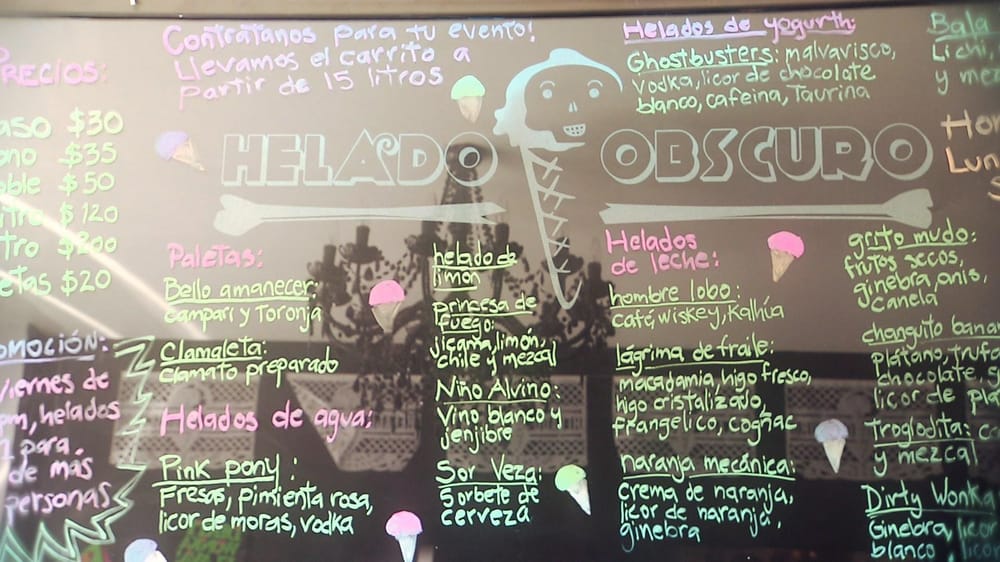 PRECIOS:
$30
$35
$50
$120
$200
$20
viernes de
helados
1 para
de mas
personas
Contratanos para tu evento!
Llevamos el carrito a
partir de 15 litros
HELADO OBSCURO
Paletas:
Bello amanecer:
campari y Toronja
Clamaleta:
clamato preparado
Helados de agua:
Pink pony:
Fresas, pimienta rosa,
licor de moras, vodka
helado de
limón
princesa de
fuego:
jicama, limón,
chile y mezcal
Niño Alvino:
Vino blanco y
jenjibre
Sor Veza:
Sorbete de
cerveza
Helados de yogurth:
Ghostbusters: malvavisco,
vodka, licor de chocolate
blanco, cafeina, Taurina
Helados
de leche:
hombre lobo:
café, wiskey, Kalhúa
lágrima de fraile:
macadamia, higo fresco,
higo cristalizado,
frangelico, cognac
naranja mecánica:
crema de naranja,
licor de naranja,
ginebra
Bala
Lichi,
y
grito mudo:
frutos secos,
ginebra, anis,
canela
changuito
platano,
chocolate,
licor de
Troglodita:
y mezcal
Dirty Wonka
Ginebra, licor
blanco, licor